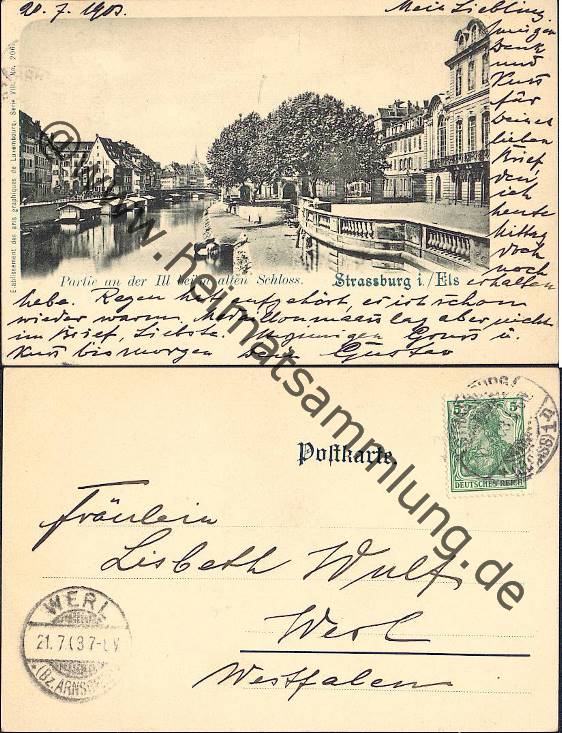 20. 7. 1903.
Mein Liebling.
innigen
Dank
und
Kuss
für
Deinen
lieben
Brief,
den
ich
heute
Mittag
doch
noch
erhalten
habe. Regen hat aufgehört, er ist schon
wieder warm. aber nicht
im Brief, Liebste. Gruss u.
Kuss bis morgen Dein Gustav
Etablissement des arts graphiques de Luxembourg. Serie VIII. No. 206.
Partie an der Ill beim alten Schloss.
Strassburg i./Els
@ www.heimatsammlung.de
Postkarte.
5 5
DEUTSCHES REICH
Fräulein
Lisbeth Wulf
Werl
Westfalen
WERL
21.7.03 7-8V
(Bz. ARNSBERG)